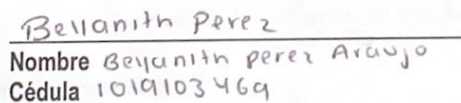 Bellanith Perez
Nombre Bellanith perez Araujo
Cédula 1019103469